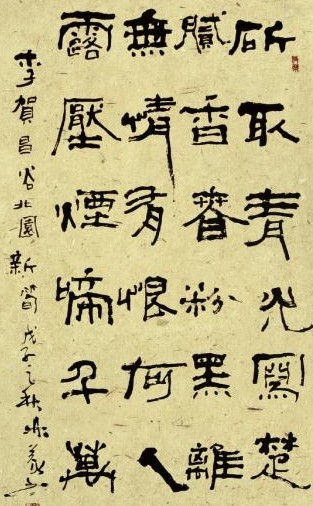 斫取青光寫楚
膩香春粉黑離
無情有恨何人
露壓煙啼千萬
李賀昌谷北園新筍戊子之秋